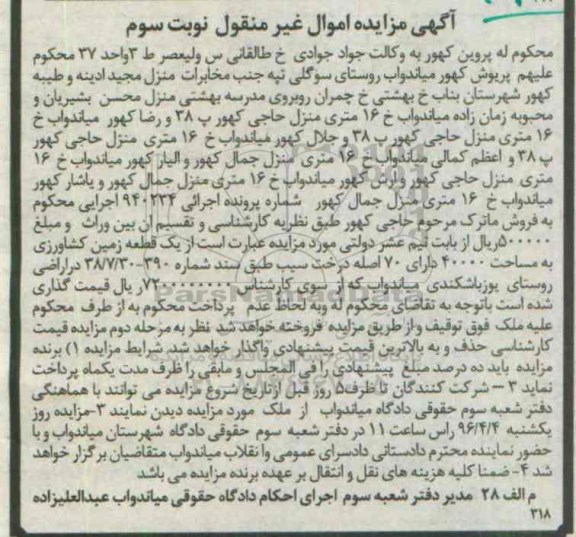 آگهی مزایده اموال غیر منقول نوبت سوم
محکوم له پروین کهور به وکالت جواد جوادی خ طالقانی س ولیعصر ط ۳واحد ۳۷ محکوم
علیهم پریوش کهور میاندواب روستای سوگلی تپه جنب مخابرات منزل مجید ادینه و طیبه
کهور شهرستان بناب خ بهشتی خ چمران روبروی مدرسه بهشتی منزل محسن بشیریان و
محبوبه زمان زاده میاندواب خ ۱۶ متری منزل حاجی کهور پ ۳۸ و رضا کهور میاندواب خ
۱۶ متری منزل حاجی کهور پ ۳۸ و جلال کهور میاندواب خ ۱۶ متری منزل حاجی کهور
پ ۳۸ و اعظم کمالی میاندواب خ ۱۶ متری منزل جمال کهور و الیار کهور میاندواب خ ۱۶
متری منزل حاجی کهور و کهور میاندواب خ ۱۶ متری منزل جمال کهور و یاشار کهور
میاندواب خ ۱۶ متری منزل جمال کهور شماره پرونده اجرائی ۹۴۰۲۳۴ اجرایی محکوم
به فروش ماترک مرحوم حاجی کهور طبق نظریه کارشناسی و تقسیم ان بین وراث و مبلغ
۵۰۰۰۰۰۰ریال از بابت نیم عشر دولتی مورد مزایده عبارت است از یک قطعه زمین کشاورزی
به مساحت ۴۰۰۰۰ دارای ۷۰ اصله درخت سیب طبق سند شماره ۳۹۰-۳۸/۷/۳۰ دراراضی
روستای یوزباشکندی میاندواب که از سوی کارشناس ریال قیمت گذاری
شده است باتوجه به تقاضای محکوم له وبه لحاظ عدم پرداخت محکوم به از طرف محکوم
علیه ملک فوق توقیف و از طریق مزایده فروخته خواهد شد نظر به مرحله دوم مزایده قیمت
کارشناسی حذف و به بالاترین قیمت پیشنهادی واگذار خواهد شد. شرایط مزایده ۱) برنده
مزایده باید ده درصد مبلغ پیشنهادی را فی المجلس و مابقی را ظرف مدت یکماه پرداخت
نماید ۳ – شرکت کنندگان تا ظرف۵ روز قبل ازتاریخ شروع مزایده می توانند با هماهنگی
دفتر شعبه سوم حقوقی دادگاه میاندواب از ملک مورد مزایده دیدن نمایند ۳-مزایده روز
یکشنبه ۹۶/۴/۴ راس ساعت ۱۱ در دفتر شعبه سوم حقوقی دادگاه شهرستان میاندواب و با
حضور نماینده محترم دادستانی دادسرای عمومی وانقلاب میاندواب متقاضیان برگزار خواهد
شد ۴- ضمنا کلیه هزینه های نقل و انتقال بر عهده برنده مزایده می باشد
م الف ۲۸ مدیر دفتر شعبه سوم اجرای احکام دادگاه حقوقی میاندواب عبدالعلیزاده
۳۱۸
ParsNamadData